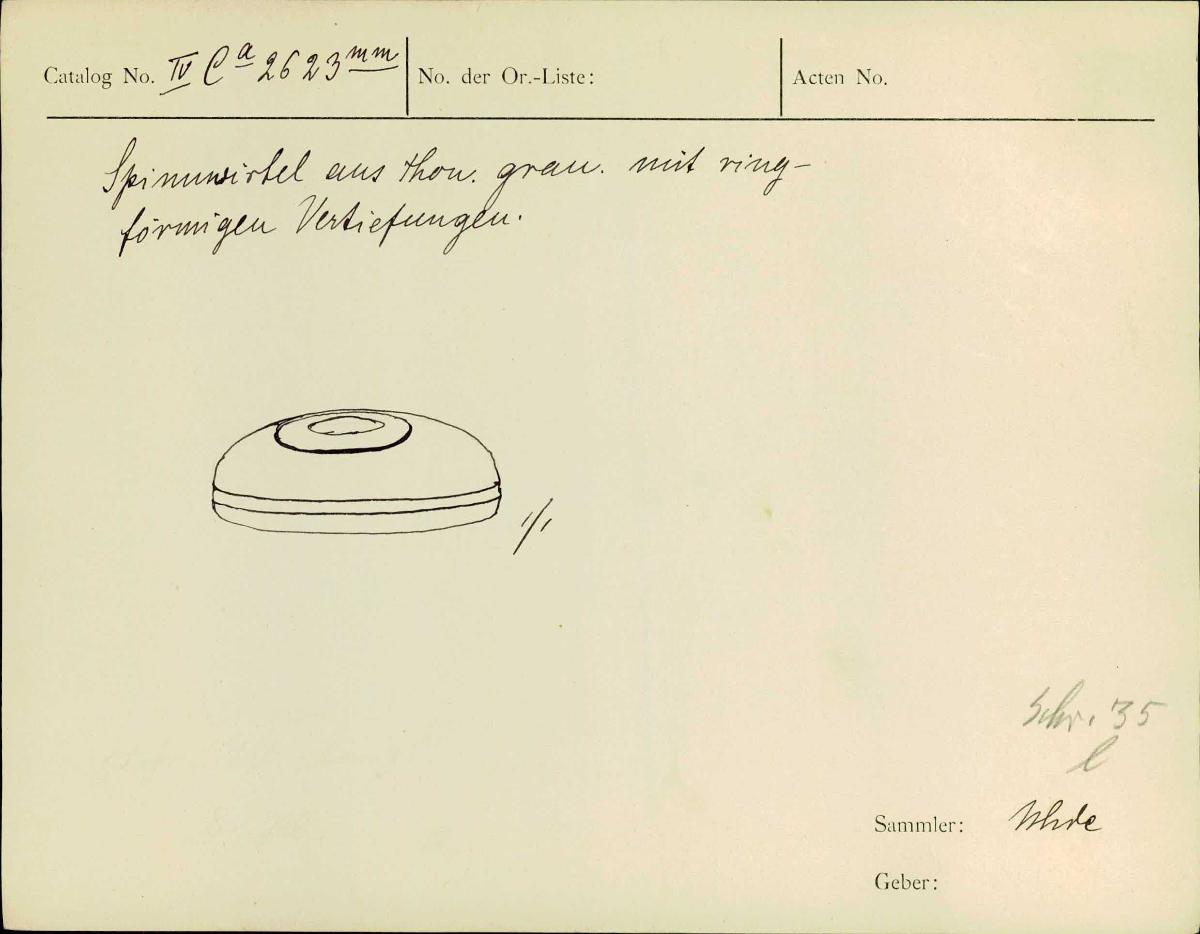 Catalog No. IV Ca 2623mm No. der Or.-Liste: Acten No.
Spinnwirtel aus thon. grau. mit ring-
förmigen Vertiefungen.
1/1
Schr. 35
l
Sammler: Uhde
Geber: